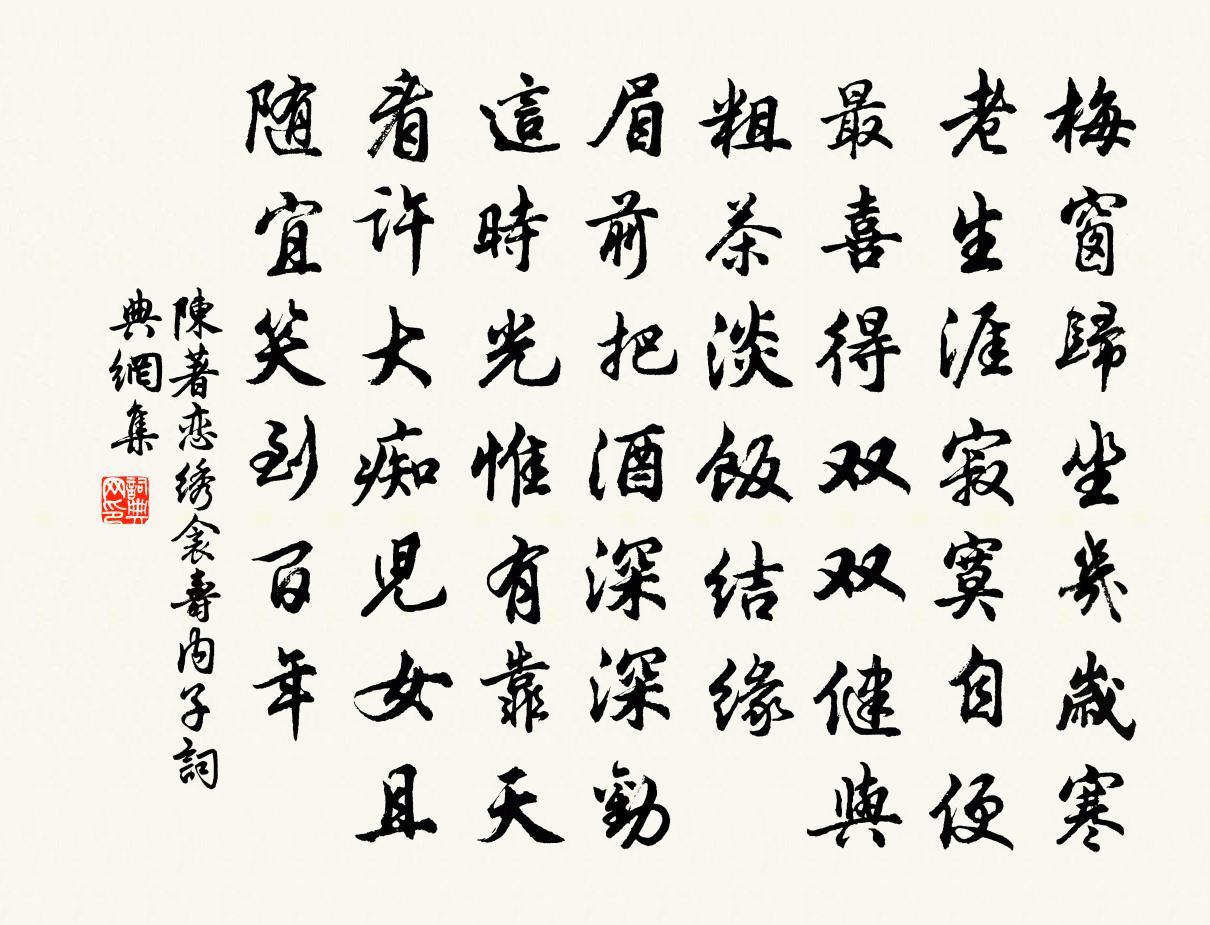 梅窗歸坐幾歲寒
老生涯寂寞自便
最喜得双双健與
粗茶淡飯結緣
眉前把酒深深勸
這時光惟有靠天
看許大痴兒女且
随宜笑到百年
陳著恋绣衾壽内子詞
典網集
詞典网印